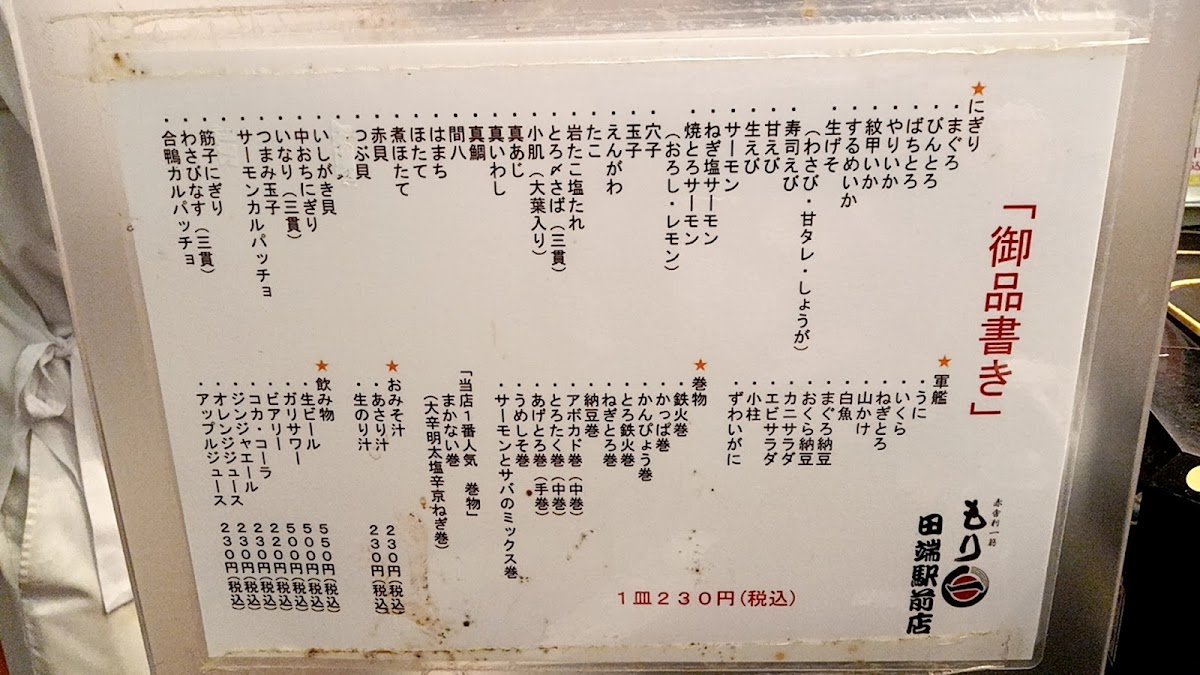 「御品書き」
★にぎり
・まぐろ
・びんとろ
・ばちとろ
・やりいか
・紋甲いか
・するめいか
・生げそ
（わさび・甘タレ・しょうが）
・寿司えび
・甘えび
・生えび
・サーモン
・ねぎ塩サーモン
・焼とろサーモン
（おろし・レモン）
・穴子
・玉子
・えんがわ
・たこ
・岩たこ塩たれ
・とろ〆さば（三貫）
・小肌（大葉入り）
・真あじ
・真いわし
・真鯛
・間八
・はまち
・ほたて
・煮ほたて
・赤貝
・つぶ貝
・いしがき貝
・中おちにぎり
・いなり（三貫）
・つまみ玉子
・サーモンカルパッチョ
・筋子にぎり
・わさびなす（三貫）
・合鴨カルパッチョ
★軍艦
・うに
・いくら
・ねぎとろ
・山かけ
・白魚
・まぐろ納豆
・おくら納豆
・カニサラダ
・エビサラダ
・小柱
・ずわいがに
★巻物
・鉄火巻
・かっぱ巻
・かんぴょう巻
・とろ鉄火巻
・ねぎとろ巻
・納豆巻
・アボカド巻（中巻）
・とろたく巻（中巻）
・あげとろ巻（手巻）
・うめしそ巻
・サーモンとサバのミックス巻
「当店１番人気　巻物」
まかない巻
（大辛明太塩辛京ねぎ巻）
★おみそ汁
・あさり汁 ２３０円（税込）
・生のり汁 ２３０円（税込）
★飲み物
・生ビール ５５０円（税込）
・ガリサワー ５００円（税込）
・ビアリー ５００円（税込）
・コカ・コーラ ２２０円（税込）
・ジンジャエール ２３０円（税込）
・オレンジジュース ２３０円（税込）
・アップルジュース ２３０円（税込）
もり一
田端駅前店
１皿２３０円（税込）